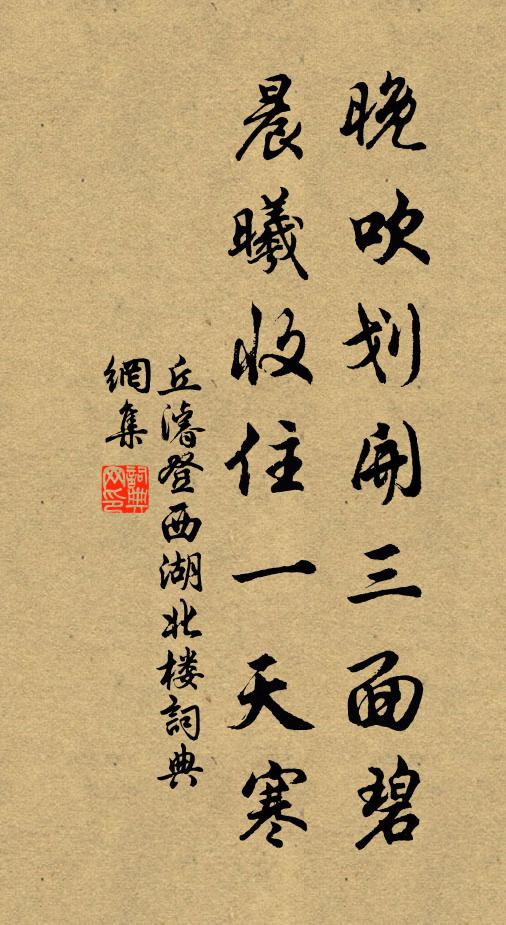 晚吹划开三面碧
晨曦收住一天寒
丘濬登西湖北楼詞典
網集
詞典
网印